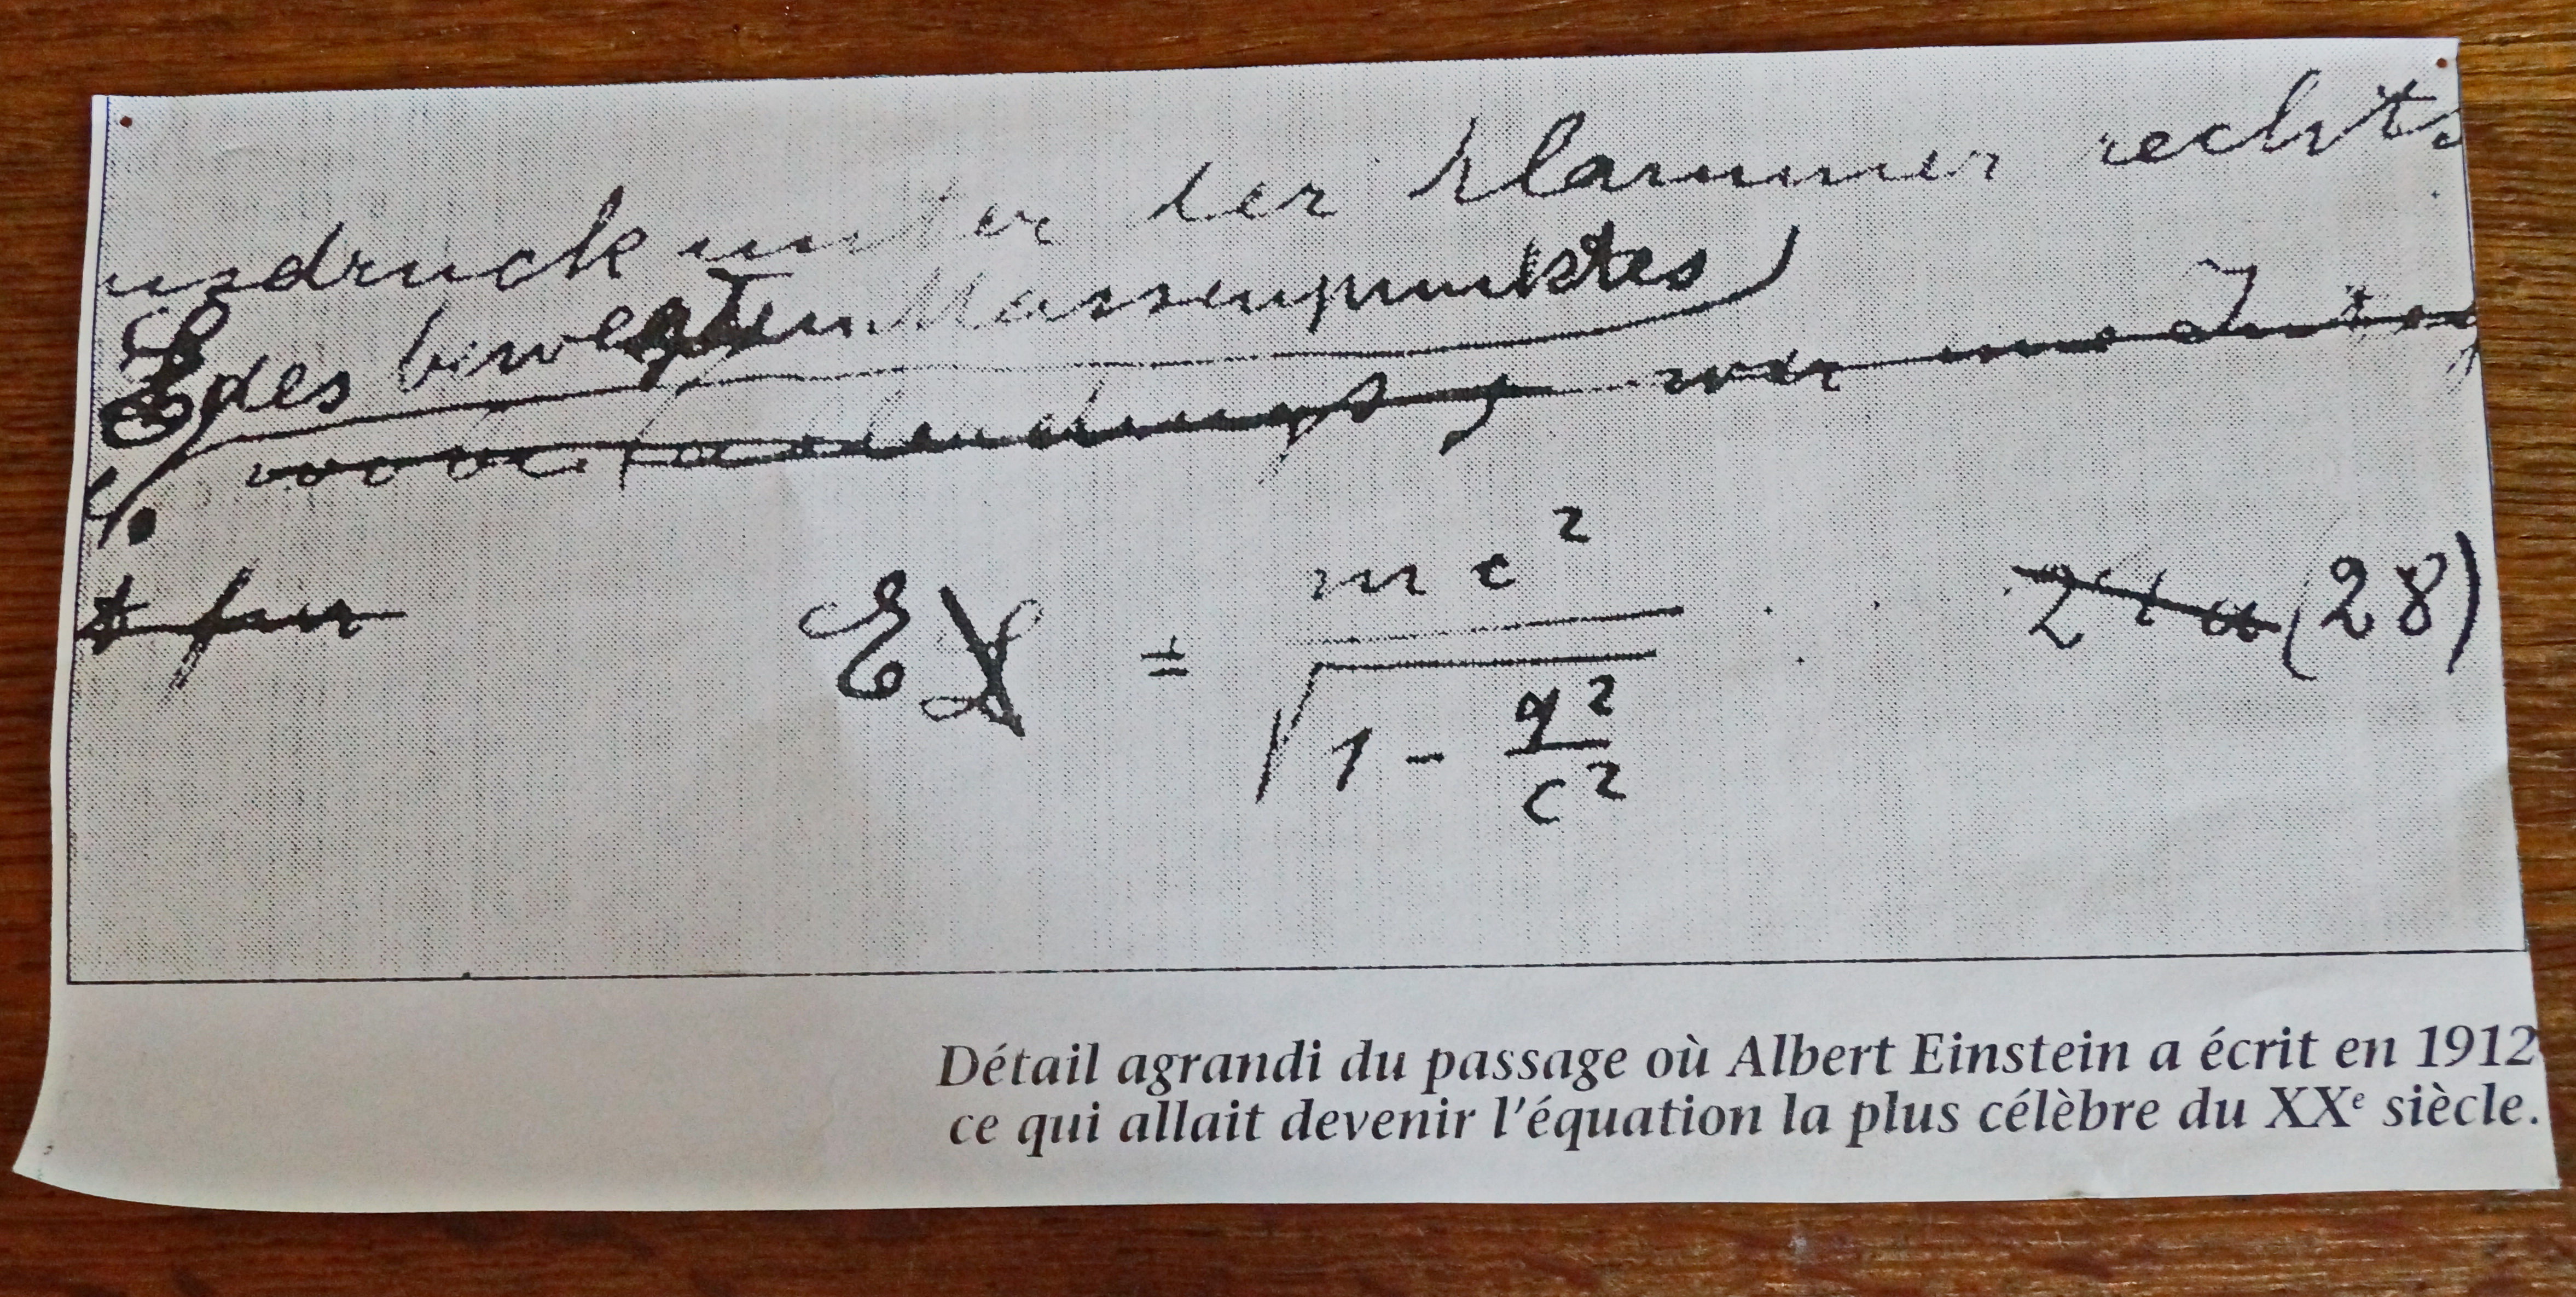 usdruck unter der Klammer rechts
E des bewegten Massenpunktes
E = mc²
√1 - q²/c²
(28)
Détail agrandi du passage où Albert Einstein a écrit en 1912
ce qui allait devenir l'équation la plus célèbre du XXᵉ siècle.